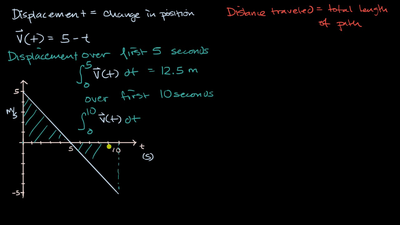 Displacement = change in position
Distance traveled = total length
of path
v(t) = 5 - t
Displacement over first 5 seconds
∫₀⁵ v(t) dt = 12.5 m
over first 10 seconds
∫₀¹⁰ v(t) dt
5
m/s
5
10
t
(s)
-5